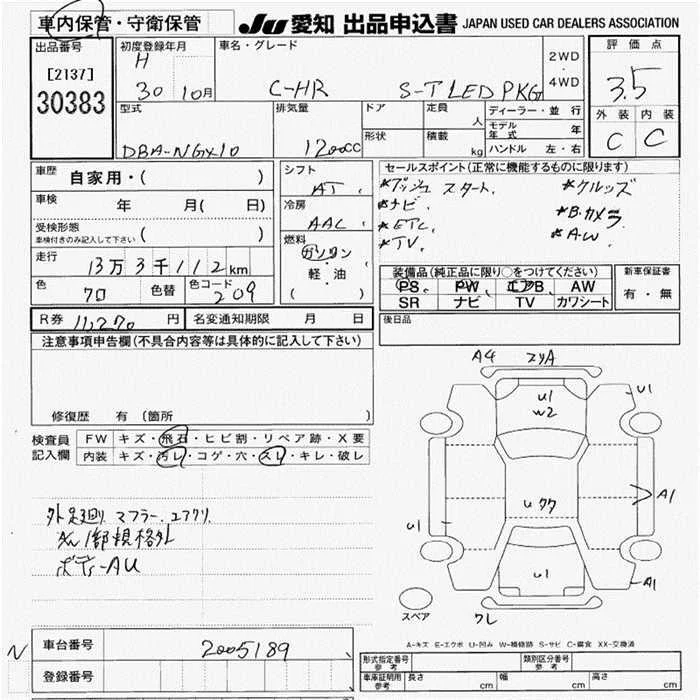 車内保管・守衛保管
JU 愛知 出品申込書 JAPAN USED CAR DEALERS ASSOCIATION
出品番号
[2137]
30383
初度登録年月
H
30 10月
車名・グレード
C-HR S-T LED PKG
2WD
・
4WD
評価点
3.5
外装 内装
C C
型式
DBA-NGX10
排気量
1200cc
ドア
形状
定員 人
積載 kg
ディーラー・並行
モデル年式 年
ハンドル 左・右
車歴 自家用・( )
車検 年 月( 日)
受検形態
車検付きのみ記入して下さい ( )
走行 13万3千112km
色 70 色替 色コード 209
シフト
AT
冷房
AAC
燃料
ガソリン
軽・油
( )
セールスポイント(正常に機能するものに限ります)
*プッシュスタート、 *クルッズ
*ナビ、 *B.カメラ
*ETC、 *A.W
*TV、
装備品(純正品に限り○をつけてください)
PS PW エアB AW
SR ナビ TV カワシート
新車保証書
有・無
R券 11,270 円 名変通知期限 月 日
後日品
注意事項申告欄(不具合内容等は具体的に記入して下さい)
修復歴 有 (箇所 )
検査員記入欄
FW キズ・飛石・ヒビ割・リペア跡・X要
内装 キズ・汚レ・コゲ・穴・スレ・キレ・破レ
外足廻り マフラー、エアクリ
AW 1部規格外
ボディ-AU
A4 スリA
U1
W2
U1
A1
Uクケ
U1
U1
A1
クレ
スペア
A-キズ E-エクボ U-凹み W-補修跡 S-サビ C-腐食 XX-交換済
N
車台番号 2005189
登録番号
形式指定番号 参考
類別区分番号 参考
車庫証明用 参考 長さ cm 幅 cm 高さ cm